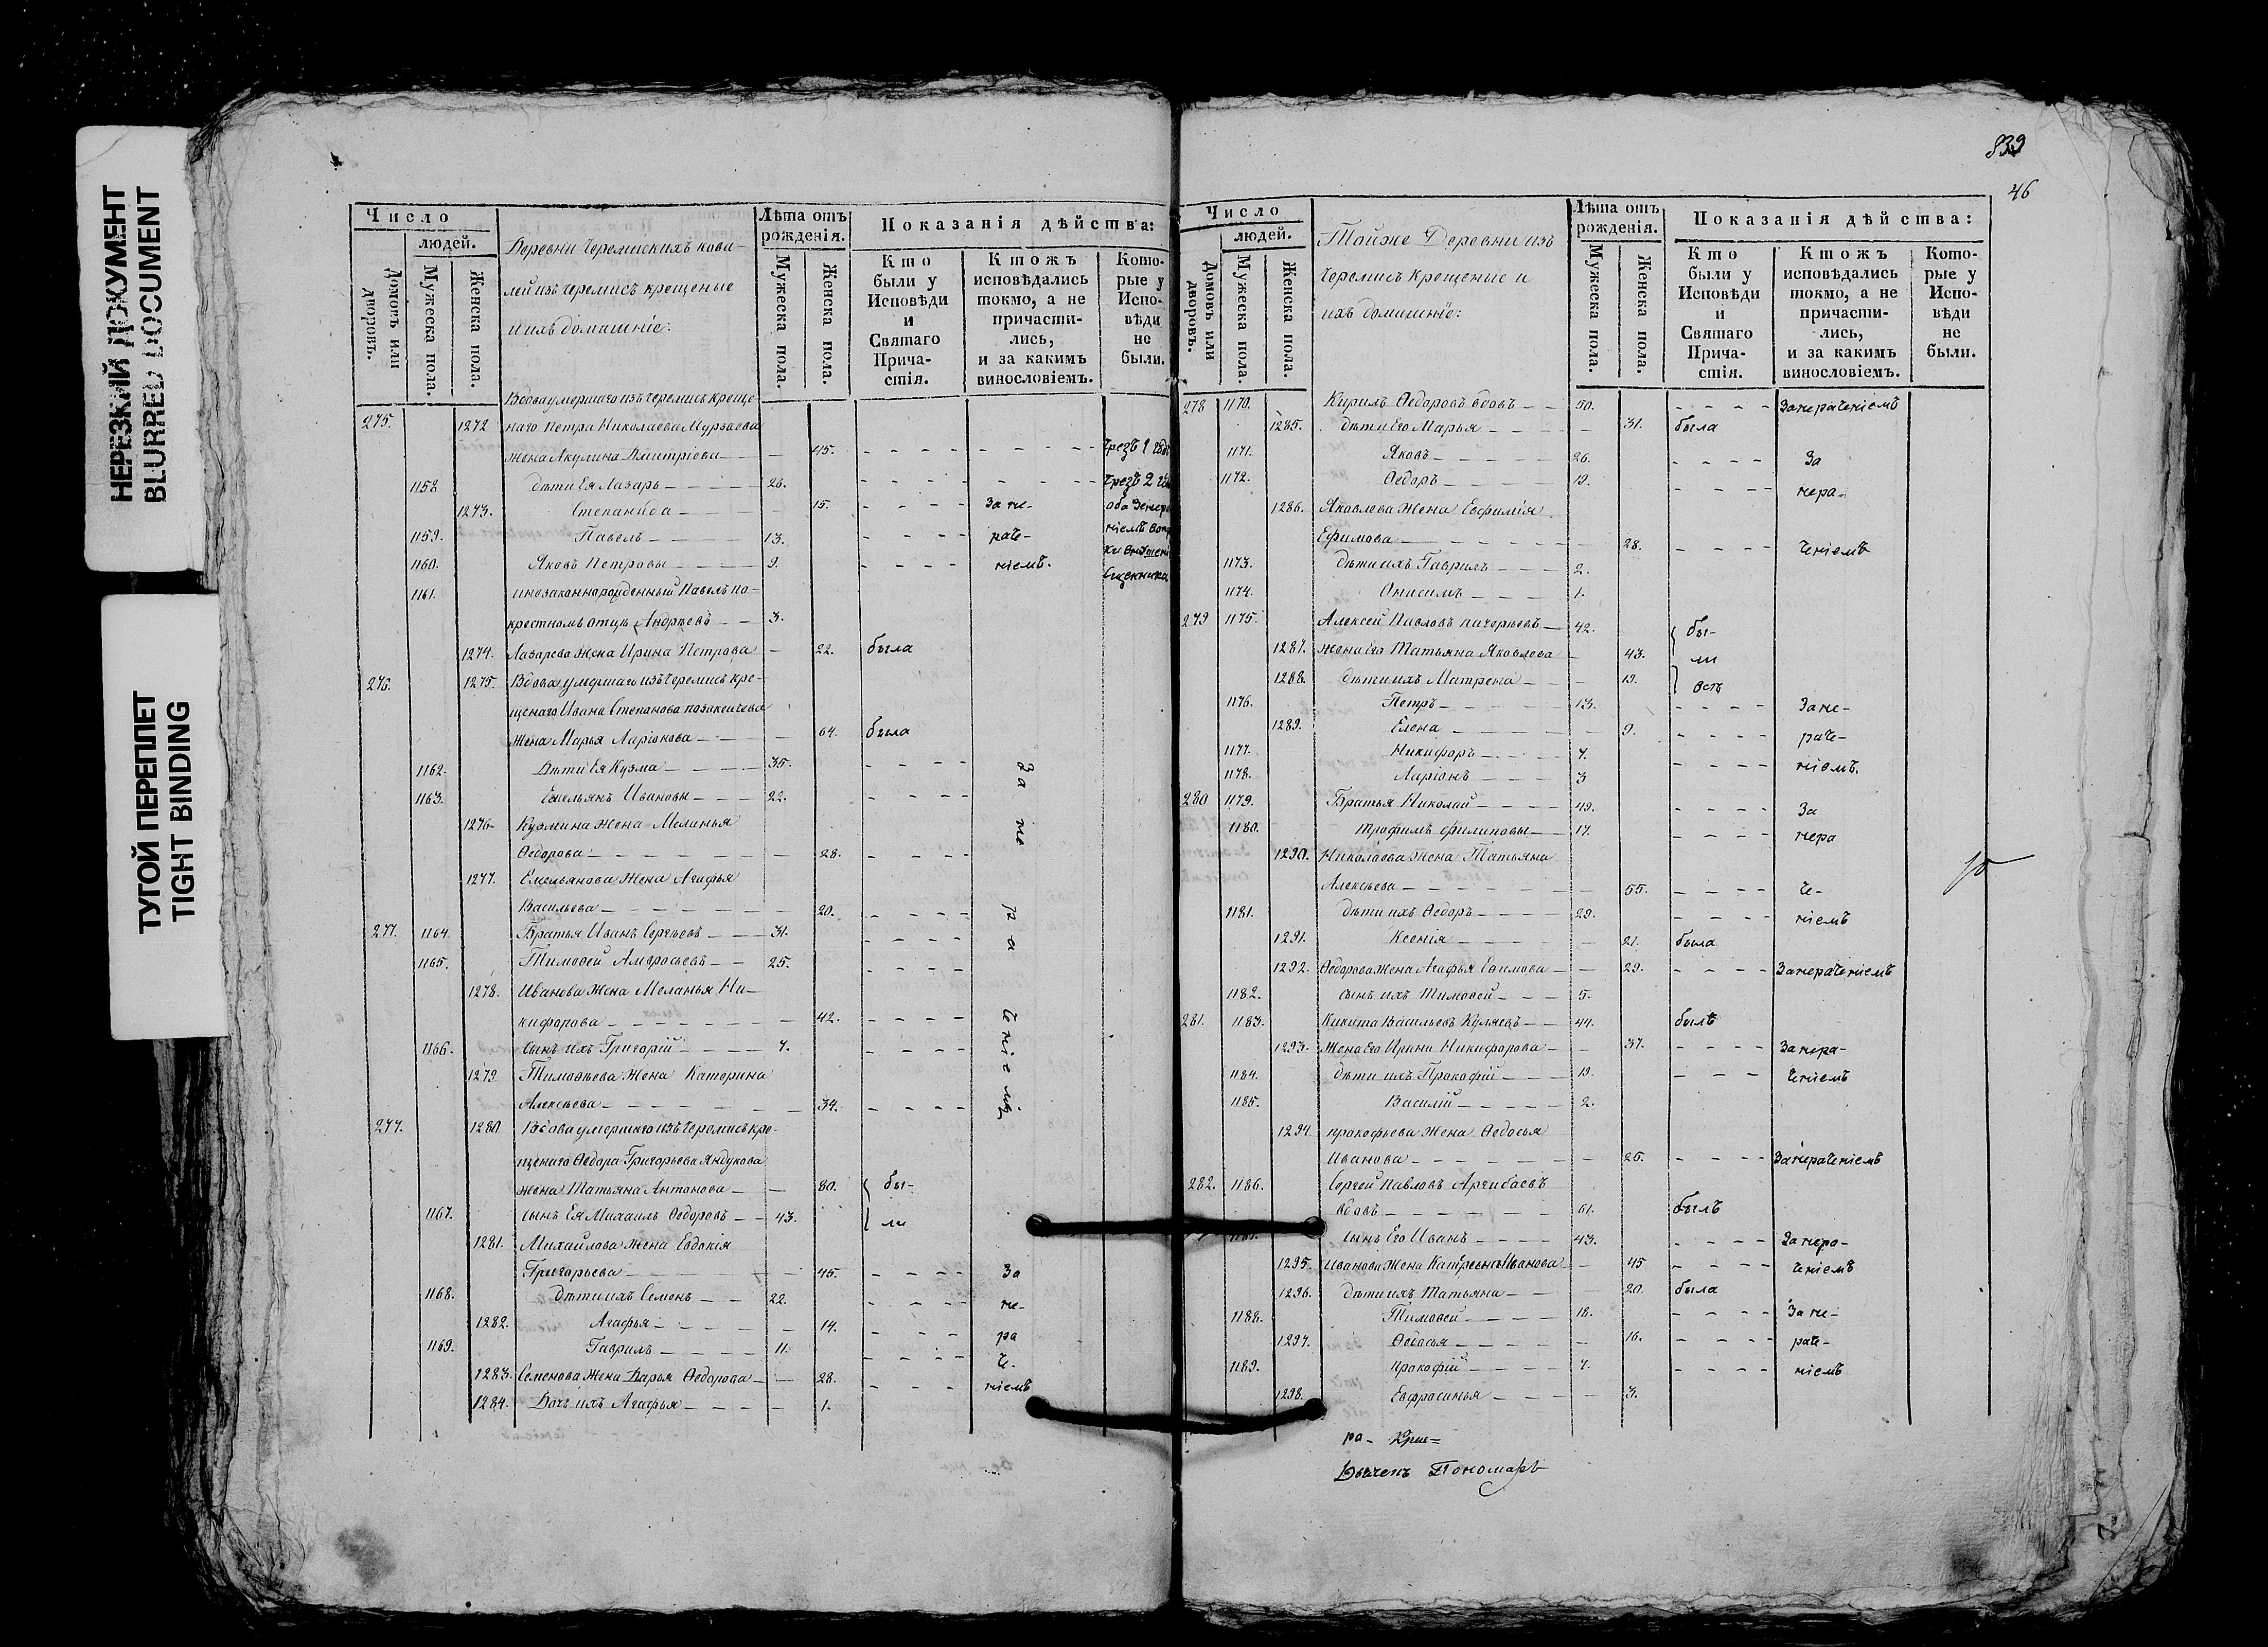 НЕРЕЗКИЙ ДОКУМЕНТ
BLURRED DOCUMENT
ТУГОЙ ПЕРЕПЛЕТ
TIGHT BINDING
Число
людей.
Домовъ или дворовъ.
Мужеска пола.
Женска пола.
Деревни Черемискихъ кова-
лей изъ Черемисъ крещеные
и ихъ домашніе:
Лѣта отъ рожденія.
Мужеска пола.
Женска пола.
Показанія дѣйства:
Кто были у Исповѣди и Святаго Прича-стія.
Ктожъ исповѣдались токмо, а не причасти-лись, и за какимъ винословіемъ.
Кото-рые у Испо-вѣди не были.
Вдова умершаго изъ Черемисъ креще-
275. 1272 наго Петра Николаева Мурзаева
жена Акулина Дмитріева — — 45. Чрезъ 1
1158 дѣти Ея Лазарь — 26. Чрезъ 2
1273. Степанида — 15. За не-
1159. Павелъ — 13. раче-
1160. Яковъ Петровы — 9. ніемъ.
1161. инезаконнорожденный Павелъ по
крестномъ отцѣ Андреевъ — 3.
1274. Лазарева жена Ирина Петрова — 22. была
276. 1275. Вдова умершаго изъ Черемисъ кре-
щенаго Ивана Степанова
жена Марья Ларіонова — 64. была
1162. Дѣти Ея Кузма — 35.
1163. Емельянъ Ивановы — 22.
1276. Кузмина жена Меланья
Ѳедорова — 28.
1277. Емельянова жена Агафья
Васильева — 20.
За не ра че ні е мъ
277. 1164 Братья Иванъ Сергѣевъ — 31.
1165. Тимоѳей Амбросьевъ — 25.
1278. Иванова жена Меланья Ни-
кифорова — 42.
1166. сынъ ихъ Григорій — 7.
1279 Тимоѳеева жена Катерина
Алексѣева — 34.
277. 1280 Вдова умершаго изъ Черемисъ кре-
щенаго Ѳедора Григорьева Яндукова
жена Татьяна Антонова — 80. бы-
1167. сынъ Ея Михаилъ Ѳедоровъ — 43. ли
1281. Михайлова жена Евдокія
Григорьева — 45. За
1168. дѣти ихъ Семенъ — 22. не-
1282. Агафья — 14. ра
1169. Гаврилъ — 11. че-
1283. Семенова жена Дарья Ѳедорова — 28. ніемъ
1284. Дочь ихъ Агафья — 1.
839
46
Число
людей.
Домовъ или дворовъ.
Мужеска пола.
Женска пола.
Тойже Деревни изъ
Черемисъ крещеные и
ихъ домашніе:
Лѣта отъ рожденія.
Мужеска пола.
Женска пола.
Показанія дѣйства:
Кто были у Исповѣди и Святаго Прича-стія.
Ктожъ исповѣдались токмо, а не причасти-лись, и за какимъ винословіемъ.
Кото-рые у Испо-вѣди не были.
278 1170. Кирилъ Ѳедоровъ вдовъ — 50. Занераченіемъ
1285. дѣти Его Марья — 31. была
1171. Яковъ — 26. За
1172. Ѳедоръ — 19. нера-
1286. Яковлева жена Евфимія
Ефимова — 28. ченіемъ
1173. дѣти ихъ Гаврилъ — 2.
1174. Онисимъ — 1.
279 1175. Алексей Павловъ — 42. бы-
1287. жена Его Татьяна Яковлева — 43. ли
1288. дѣти ихъ Матрена — 19.
1176. Петръ — 13. За не-
1289. Елена — 9. раче-
1177. Никифоръ — 7. ніемъ.
1178. Ларіонъ — 3
280 1179. Братья Николай — 49. За
1180. трофимъ филиповы — 17. нера
1290. Николаева жена Татьяна
Алексѣева — 55. че-
1181. дѣти ихъ Ѳедоръ — 29. ніемъ
1291. Ксенія — 21. была
1292. Ѳедорова жена Агафья Ефимова — 29. Занераченіемъ
1182. сынъ ихъ Тимоѳей — 5.
281. 1183. Никита Васильевъ Куляевъ — 44. былъ
1293. Жена Его Ирина Никифорова — 37. Занера-
1184. дѣти ихъ Прокофій — 19. ченіемъ
1185. Василій — 2.
1294. прокофьева жена Ѳедосья
Иванова — 25. Занераченіемъ
282. 1186. Сергей Павловъ
вдовъ — 61. былъ
1187. сынъ Его Иванъ — 43. Занера-
1295. Иванова жена Иванова — 45 ченіемъ
1296. дѣти ихъ Татьяна — 20. была
1188. Тимоѳей — 18. За не-
1297. Ѳедосья — 16. раче-
1189. прокофій — 7. ніемъ
1298. Евфросинья — 3.
Пономарь